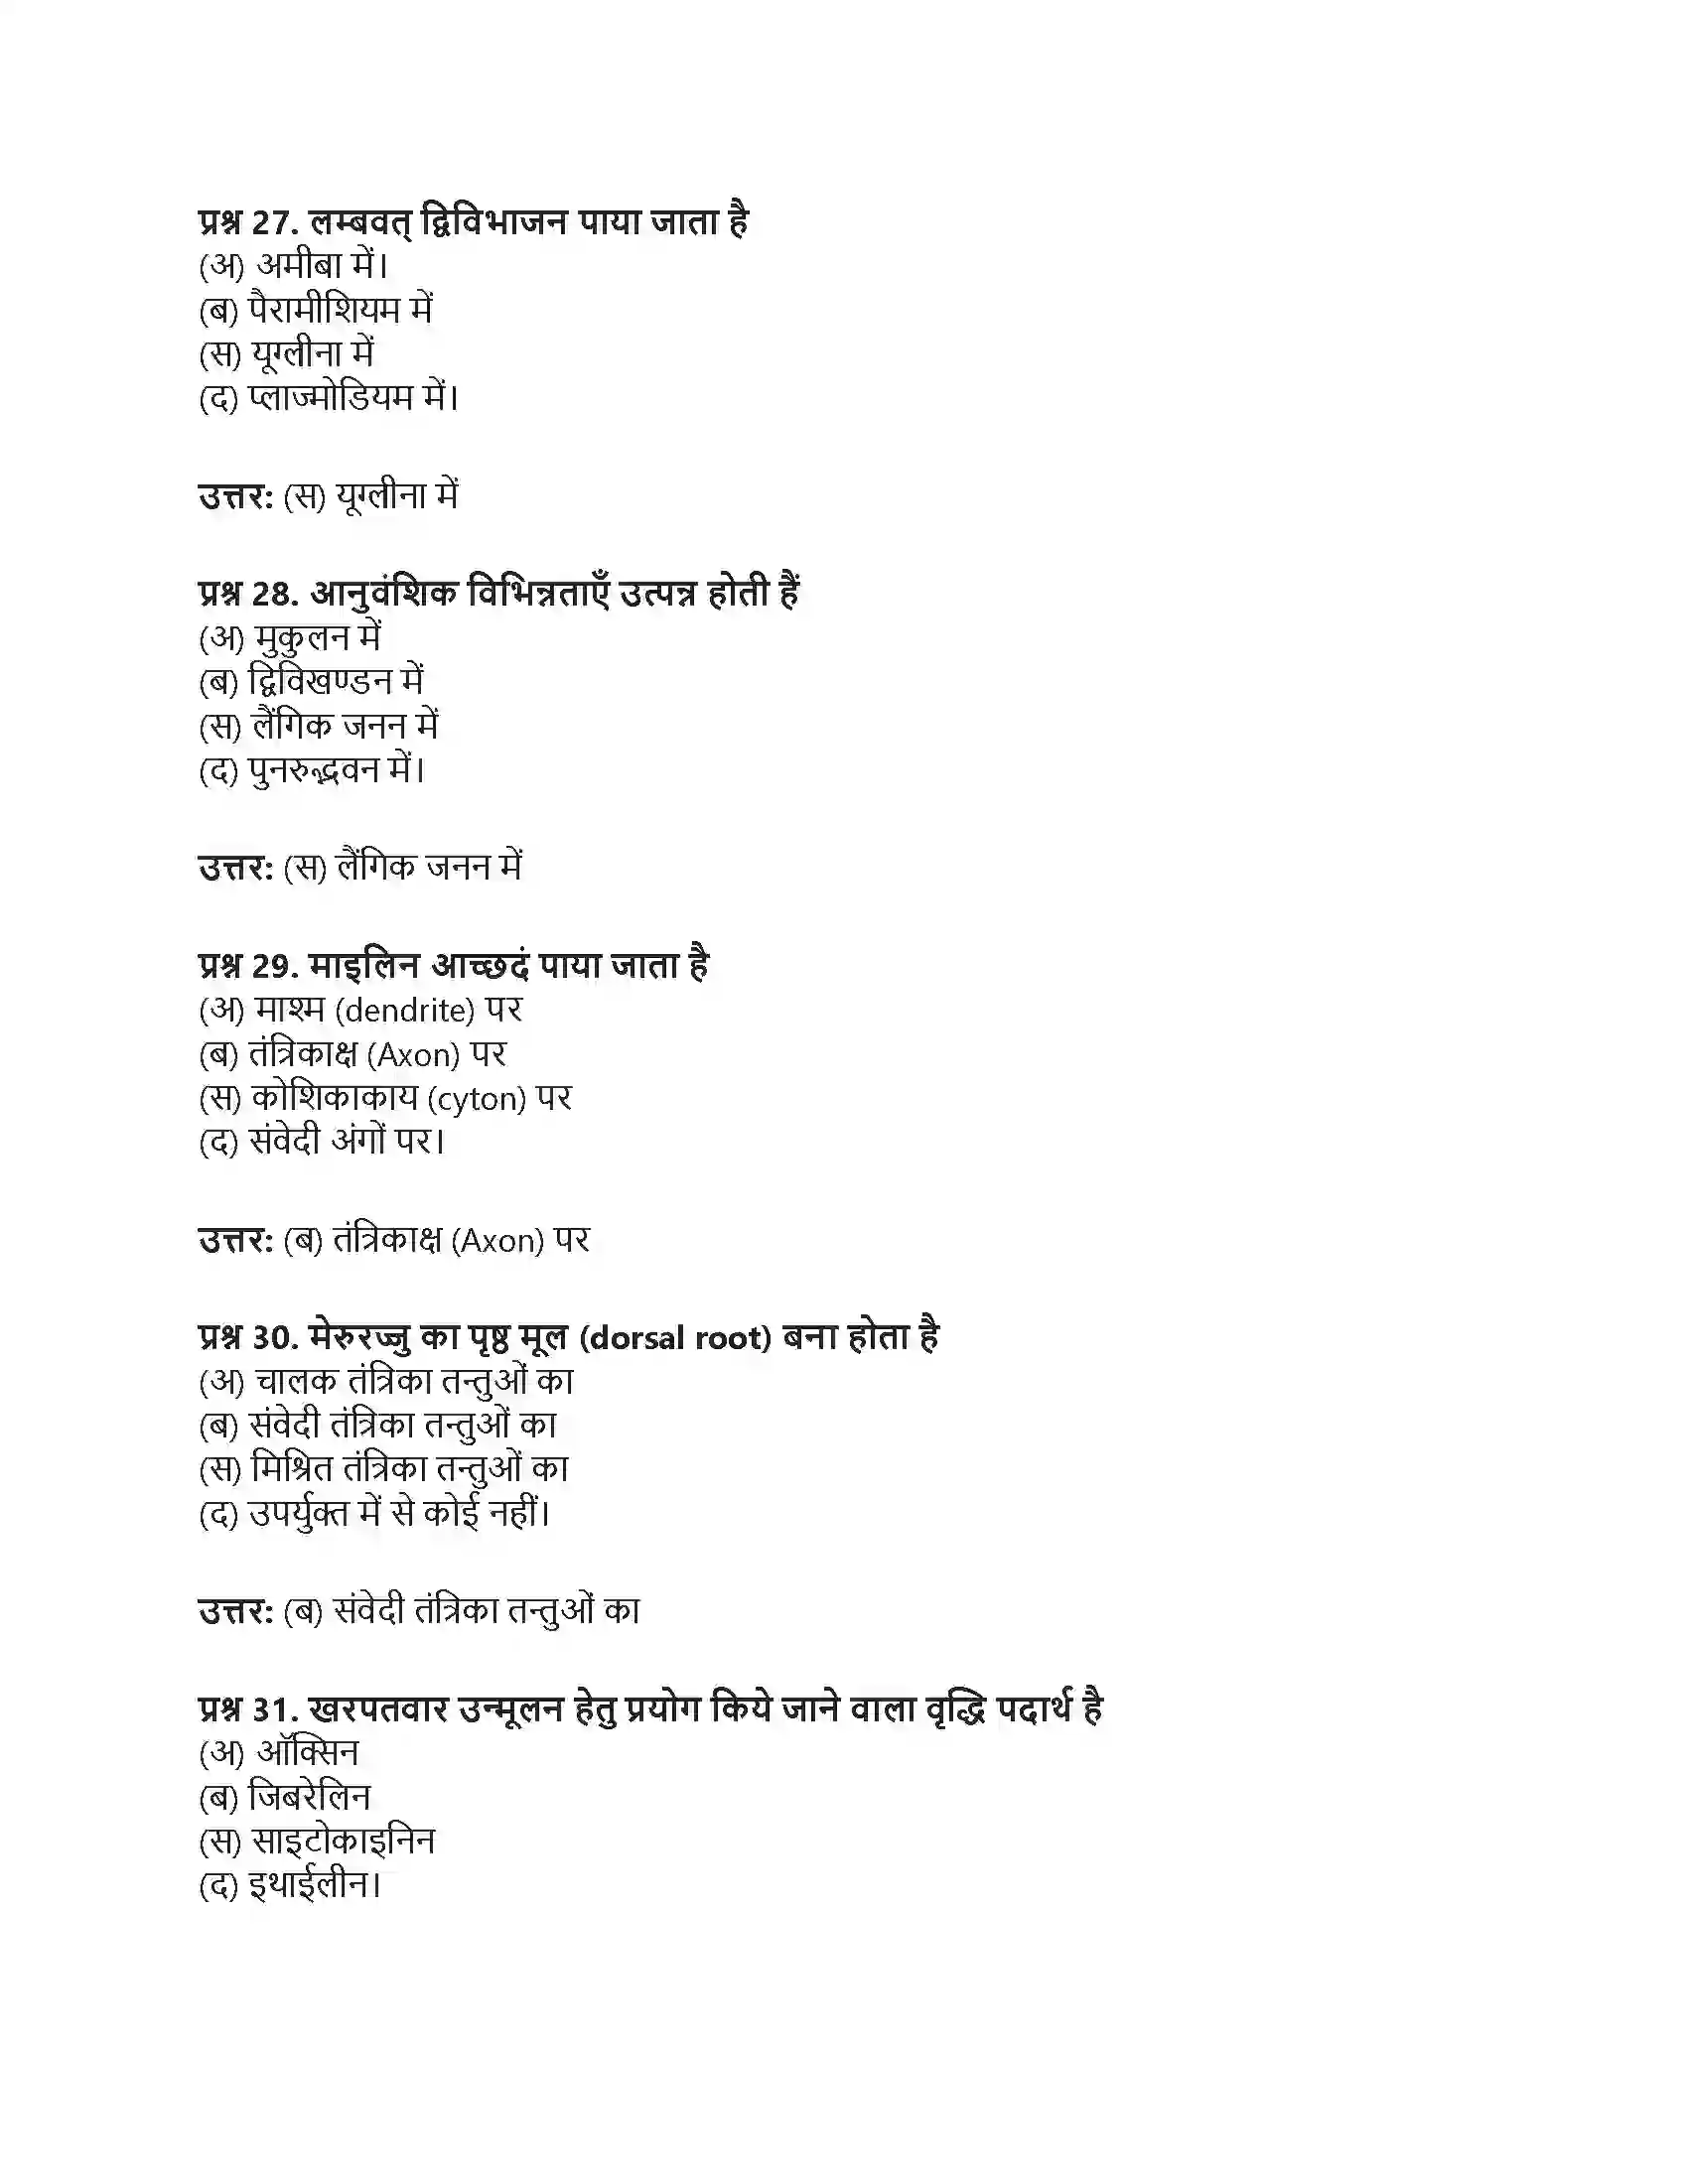 प्रश्न 27. लम्बवत् द्विविभाजन पाया जाता है
(अ) अमीबा में।
(ब) पैरामीशियम में
(स) यूग्लीना में
(द) प्लाज्मोडियम में।
उत्तर: (स) यूग्लीना में
प्रश्न 28. आनुवंशिक विभिन्नताएँ उत्पन्न होती हैं
(अ) मुकुलन में
(ब) द्विविखण्डन में
(स) लैंगिक जनन में
(द) पुनरुद्भवन में।
उत्तर: (स) लैंगिक जनन में
प्रश्न 29. माइलिन आच्छदं पाया जाता है
(अ) माश्म (dendrite) पर
(ब) तंत्रिकाक्ष (Axon) पर
(स) कोशिकाकाय (cyton) पर
(द) संवेदी अंगों पर।
उत्तर: (ब) तंत्रिकाक्ष (Axon) पर
प्रश्न 30. मेरुरज्जु का पृष्ठ मूल (dorsal root) बना होता है
(अ) चालक तंत्रिका तन्तुओं का
(ब) संवेदी तंत्रिका तन्तुओं का
(स) मिश्रित तंत्रिका तन्तुओं का
(द) उपर्युक्त में से कोई नहीं।
उत्तर: (ब) संवेदी तंत्रिका तन्तुओं का
प्रश्न 31. खरपतवार उन्मूलन हेतु प्रयोग किये जाने वाला वृद्धि पदार्थ है
(अ) ऑक्सिन
(ब) जिबरेलिन
(स) साइटोकाइनिन
(द) इथाईलीन।